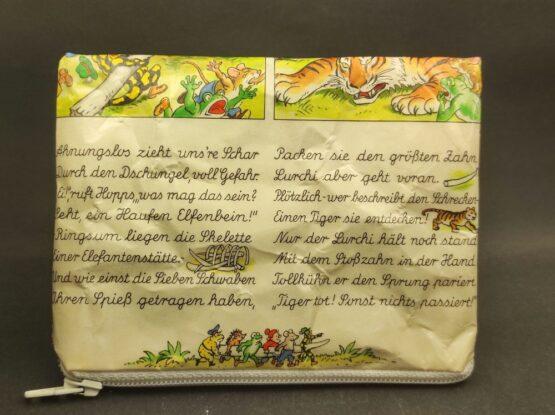 Ahnungslos zieht uns're Schar
Durch den Dschungel, voll Gefahr.
Ei!", ruft Hopps, „was mag das sein?
Seht, ein Haufen Elfenbein!"
Ringsum liegen die Skelette
Einer Elefantenstätte.
Und wie einst die Sieben Schwaben
Ihren Spieß getragen haben,
Packen sie den größten Zahn
Lurchi aber geht voran.
Plötzlich - wer beschreibt den Schrecken -
Einen Tiger sie entdecken!
Nur der Lurchi hält noch stand
Mit dem Stoßzahn in der Hand
Tollkühn er den Sprung pariert
„Tiger tot! Sonst nichts passiert!"